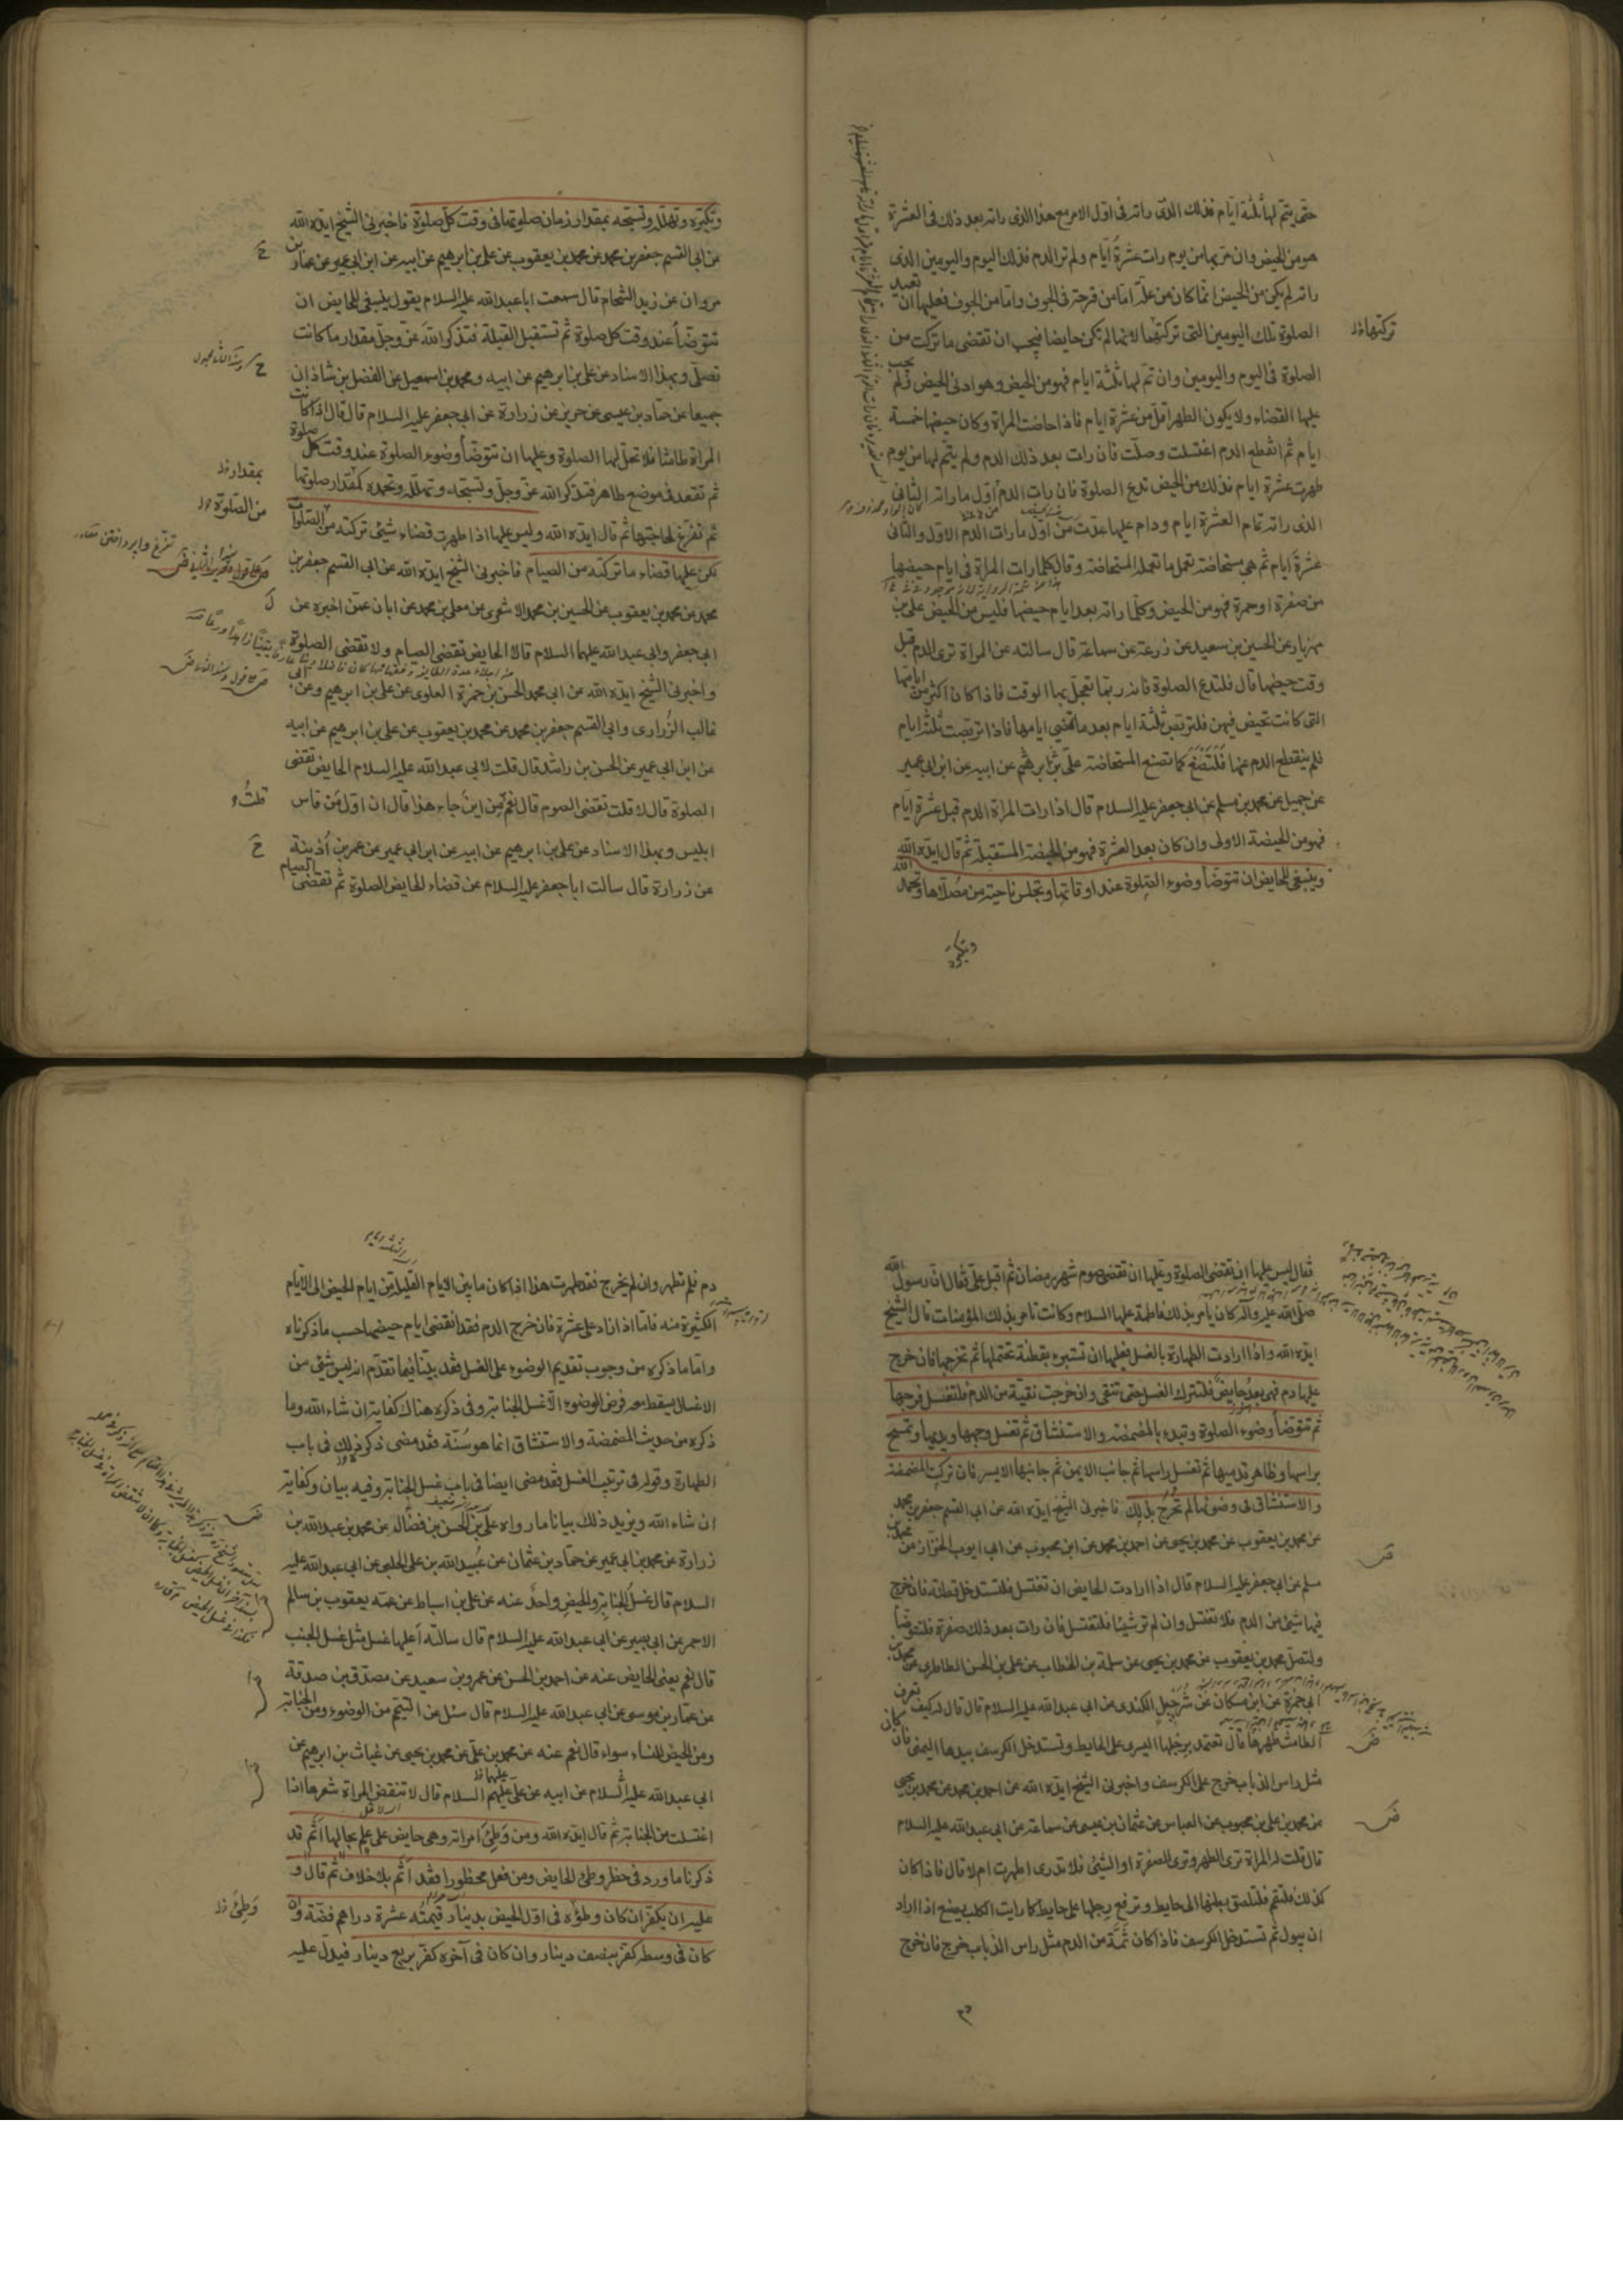 حتى يتم لها ثلثة ايام فذلك الذى راته فى اول الامر مع هذا الذى راته بعد ذلك فى العشرة
هو من الحيض وان مر بها من يوم رات عشرة ايام ولم تر الدم فذلك اليوم واليومين الذى
راته لم يكن من الحيض انما كان من علة اما من قرحة فى الجوف واما من الجوف فعليها ان تعيد
الصلوة تلك اليومين التى تركتها لانها لم تكن حايضا فيجب ان تقضى ما تركت من
تركتها
الصلوة فى اليوم واليومين وان تم لها ثلثة ايام فهو من الحيض وهو ادنى الحيض ولم يجب
عليها القضاء ولا يكون الطهر اقل من عشرة ايام فاذا حاضت المراة وكان حيضها خمسة
ايام ثم انقطع الدم اغتسلت وصلت فان رات بعد ذلك الدم ولم يتم لها من يوم
طهرت عشرة ايام فذلك من الحيض تدع الصلوة فان رات الدم اول ما راته الثانى
الذى راته تمام العشرة ايام ودام عليها عدت من اول ما رات الدم الاول والثانى
عشرة ايام ثم هى مستحاضة تعمل ما تعمله المستحاضة وقال كلما رات المراة فى ايام حيضها
من صفرة او حمرة فهو من الحيض وكلما راته بعد ايام حيضها فليس من الحيض على بن
مهزيار عن الحسين بن سعيد عن زرعة عن سماعة قال سالته عن المراة ترى الدم قبل
وقت حيضها قال فلتدع الصلوة فانه ربما تعجل بها الوقت فاذا كان اكثر من ايامها
التى كانت تحيض فيهن فلتربص ثلثة ايام بعد ما تمضى ايامها فاذا تربصت ثلثة ايام
فلم ينقطع الدم عنها فلتصنع كما تصنع المستحاضة على بن ابرهيم عن ابيه عن ابن ابى عمير
عن جميل عن محمد بن مسلم عن ابى جعفر عليه السلام قال اذا رات المراة الدم قبل عشرة ايام
فهو من الحيضة الاولى وان كان بعد العشرة فهو من الحيضة المستقبلة ثم قال ايده الله
وينبغى للحايض ان تتوضأ وضوء الصلوة عند اوقاتها وتجلس ناحية من مصلاها وتحمد الله
وتكبره
وتكبره وتهلله وتسبحه بمقدار زمان صلوتها فى وقت كل صلوة فاخبرنى الشيخ ايده الله
عن ابى القسم جعفر بن محمد عن محمد بن يعقوب عن على بن ابرهيم عن ابيه عن ابن ابى عمير عن عمار بن
مروان عن زيد الشحام قال سمعت ابا عبد الله عليه السلام يقول ينبغى للحايض ان
تتوضأ عند وقت كل صلوة ثم تستقبل القبلة فتذكر الله عز وجل مقدار ما كانت
تصلى وبهذا الاسناد عن على بن ابرهيم عن ابيه ومحمد بن اسمعيل عن الفضل بن شاذان
جميعا عن حماد بن عيسى عن حريز عن زرارة عن ابى جعفر عليه السلام قال قال اذا كانت
المراة طامثا فلا تحل لها الصلوة وعليها ان تتوضأ وضوء الصلوة عند وقت كل صلوة
ثم تقعد فى موضع طاهر فتذكر الله عز وجل وتسبحه وتهلله وتحمده كمقدار صلوتها
بمقدار
ثم تفرغ لحاجتها ثم قال ايده الله وليس عليها اذا طهرت قضاء شيئ تركته من الصلوات
من الصلوة
لكن عليها قضاء ما تركته من الصيام فاخبرنى الشيخ ايده الله عن ابى القسم جعفر بن
محمد عن محمد بن يعقوب عن الحسين بن محمد الاشعرى عن معلى بن محمد عن ابان عمن اخبره عن
ابى جعفر وابى عبد الله عليهما السلام قالا الحايض تقضى الصيام ولا تقضى الصلوة
واخبرنى الشيخ ايده الله عن ابى محمد الحسن بن حمزة العلوى عن على بن ابرهيم وعن ابى
غالب الزرارى وابى القسم جعفر بن محمد عن محمد بن يعقوب عن على بن ابرهيم عن ابيه
عن ابن ابى عمير عن الحسن بن راشد قال قلت لابى عبد الله عليه السلام الحايض تقضى
الصلوة قال لا قلت تقضى الصوم قال نعم من اين جاء هذا قال ان اول من قاس
قلت
ابليس وبهذا الاسناد عن على بن ابرهيم عن ابيه عن ابن ابى عمير عن عمر بن اذينة
عن زرارة قال سالت ابا جعفر عليه السلام عن قضاء الحايض الصلوة ثم تقضى الصيام
فقال ليس عليها ان تقضى الصلوة وعليها ان تقضى صوم شهر رمضان ثم اقبل على فقال ان رسول الله
صلى الله عليه وآله كان يامر بذلك فاطمة عليها السلام وكانت تامر بذلك المؤمنات قال الشيخ
ايده الله واذا ارادت الطهارة بالغسل فعليها ان تستبرئ بقطنة تحتملها ثم تخرجها فان خرج
عليها دم فهى بعد حايض فلتترك الغسل حتى تنقى وان خرجت نقية من الدم فلتغسل فرجها
ثم تتوضأ وضوء الصلوة وتبدء بالمضمضة والاستنشاق ثم تغسل وجهها ويديها وتمسح
براسها وظاهر قدميها ثم تغسل راسها ثم جانبها الايمن ثم جانبها الايسر فان تركت المضمضة
والاستنشاق فى وضوئها لم تحرج بذلك فاخبرنى الشيخ ايده الله عن ابى القسم جعفر بن محمد
عن محمد بن يعقوب عن محمد بن يحيى عن احمد بن محمد عن ابن محبوب عن ابى ايوب الخزاز عن محمد بن
مسلم عن ابى جعفر عليه السلام قال اذا ارادت الحايض ان تغتسل فلتستدخل قطنة فان خرج
فيها شيئ من الدم فلا تغتسل وان لم تر شيئا فلتغتسل فان رات بعد ذلك صفرة فلتتوضأ
ولتصل محمد بن يعقوب عن محمد بن يحيى عن سلمة بن الخطاب عن على بن الحسن الطاطرى عن محمد بن
ابى حمزة عن ابن مسكان عن شرحبيل الكندى عن ابى عبد الله عليه السلام قال قال له كيف تعرف
الطامث طهرها قال تعتمد برجلها اليسرى على الحايط وتستدخل الكرسف بيدها اليمنى فان كان
مثل راس الذباب خرج على الكرسف واخبرنى الشيخ ايده الله عن احمد بن محمد عن محمد بن يحيى
عن محمد بن على بن محبوب عن العباس عن عثمان بن عيسى عن سماعة عن ابى عبد الله عليه السلام
قال قلت له المراة ترى الطهر وترى الصفرة او الشيئ فلا تدرى اطهرت ام لا قال فاذا كان
كذلك فلتقم فلتلصق بطنها الى حايط وترفع رجلها على حايط كما رايت الكلب يصنع اذا اراد
ان يبول ثم تستدخل الكرسف فاذا كان ثمة من الدم مثل راس الذباب خرج فان خرج
دم
دم فلم تطهر وان لم يخرج فقد طهرت هذا اذا كان ما بين الايام القليلة من ايام الحيض الى الايام
الكثيرة منه فاما اذا زاد على عشرة فان خرج الدم فقد انقضى ايام حيضها حسب ما ذكرناه
واما ما ذكره من وجوب تقديم الوضوء على الغسل فقد بيناه فيما تقدم انه ليس شيئ من
الاغسال يسقط معه فرض الوضوء الا غسل الجنابة وفى ذكره هناك كفاية ان شاء الله وما
ذكره من حديث المضمضة والاستنشاق انما هو سنة فقد مضى ذكر ذلك فى باب
الطهارة وقوله فى ترتيب الغسل فقد مضى ايضا فى باب غسل الجنابة وفيه بيان وكفاية
ان شاء الله ويزيد ذلك بيانا ما رواه على بن الحسن بن فضال عن محمد بن عبد الله بن
زرارة عن محمد بن ابى عمير عن حماد بن عثمان عن عبيد الله بن على الحلبى عن ابى عبد الله عليه
السلام قال غسل الجنابة والحيض واحد عنه عن على بن اسباط عن عمه يعقوب بن سالم
الاحمر عن ابى بصير عن ابى عبد الله عليه السلام قال سالته أعليها غسل مثل غسل الجنب
قال نعم يعنى الحايض عنه عن احمد بن الحسن عن عمرو بن سعيد عن مصدق بن صدقة
عن عمار بن موسى عن ابى عبد الله عليه السلام قال سئل عن التيمم من الوضوء ومن الجنابة
ومن الحيض للنساء سواء قال نعم عنه عن محمد بن على عن محمد بن يحيى عن غياث بن ابرهيم عن
ابى عبد الله عليه السلام عن ابيه عن على عليهم السلام قال لا تنقض المراة شعرها اذا
اغتسلت من الجنابة ثم قال ايده الله ومن وطئ امراته وهى حايض على علم بحالها أثم قد
ذكرنا ما ورد فى حظر وطئ الحايض ومن فعل محظورا فقد أثم بلا خلاف ثم قال و
عليه ان يكفر ان كان وطؤه فى اول الحيض بدينار قيمته عشرة دراهم فضة وان
وطئ
كان فى وسطه كفر بنصف دينار وان كان فى آخره كفر بربع دينار فيدل عليه